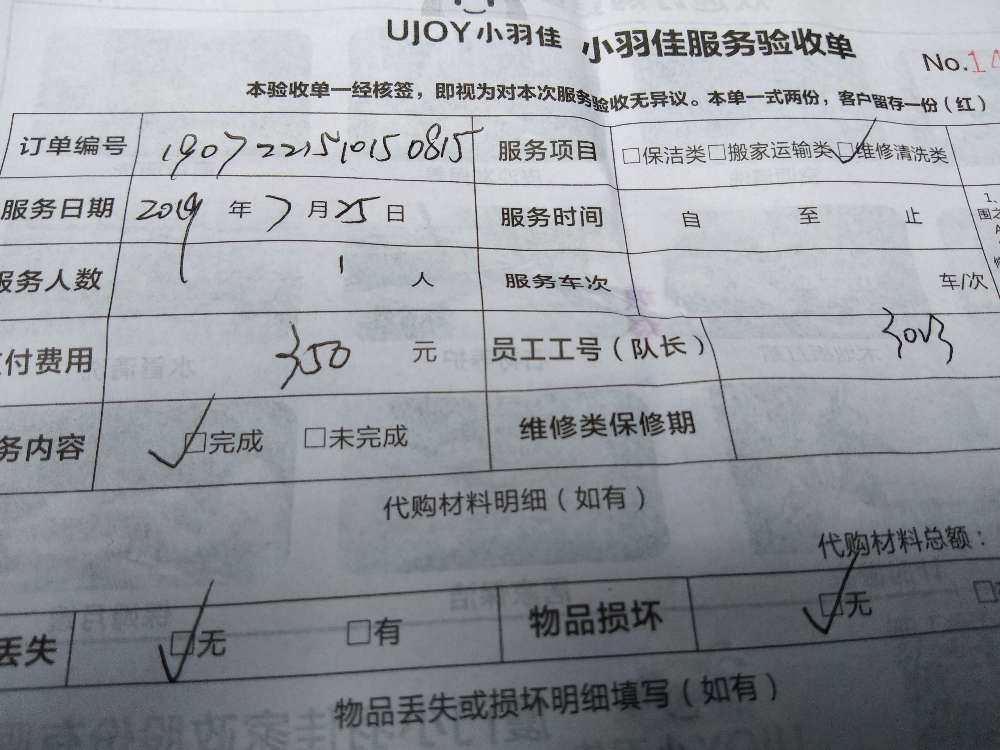 UJOY小羽佳 小羽佳服务验收单
No.14
本验收单一经核签，即视为对本次服务验收无异议。本单一式两份，客户留存一份（红）
订单编号 190722151015 0815 服务项目 □保洁类□搬家运输类☑维修清洗类
服务日期 2019 年 7 月 25 日 服务时间 自 至 止
服务人数 1 人 服务车次 车/次
付费用 350 元 员工工号（队长）
务内容 ☑完成 □未完成 维修类保修期
代购材料明细（如有）
代购材料总额：
丢失 ☑无 □有 物品损坏 ☑无
物品丢失或损坏明细填写（如有）